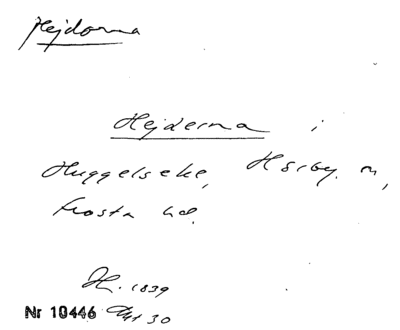 Hejdorna
Hejderna i
Huggelseke, Hörby. n,
Frosta hd.
H. 1839
Nr 10446 Akt 30